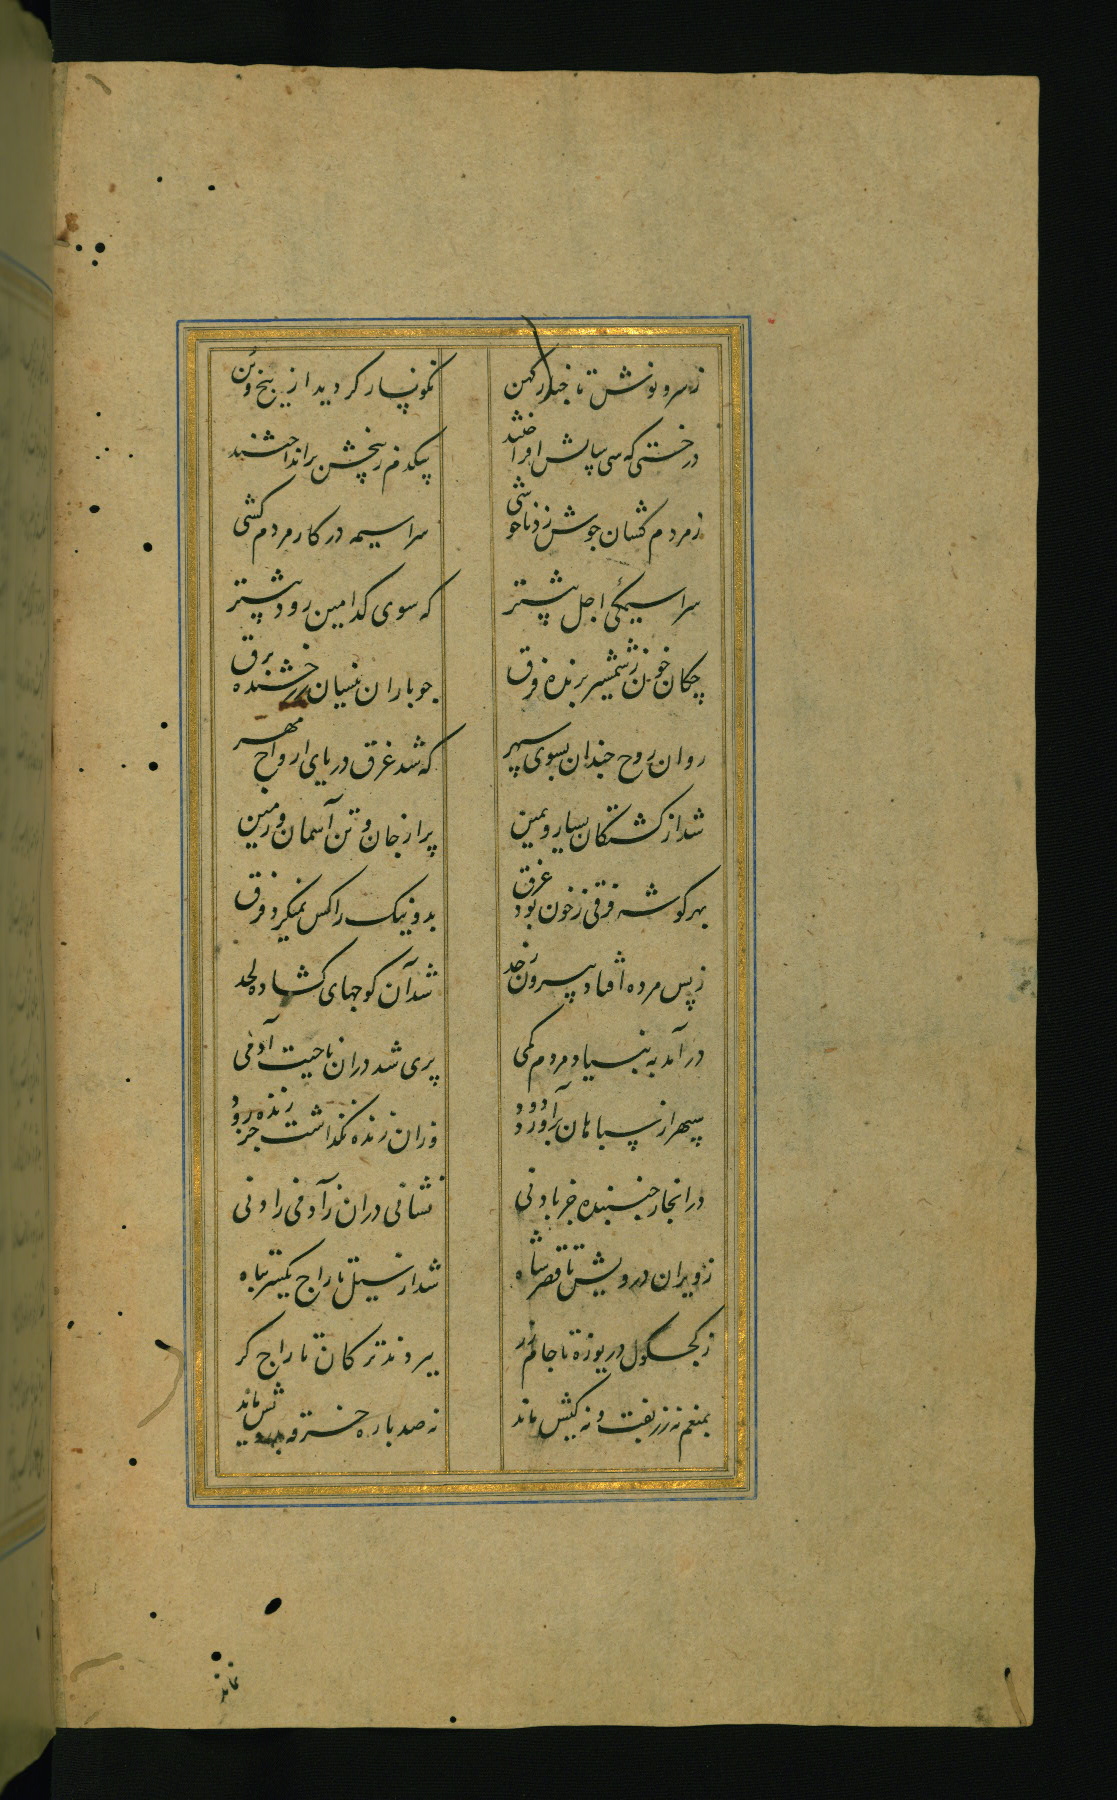 ز سرو نوش تا چنار کهن نکونسار کردید از بیخ و بن
درختی که سی سالش افراختند بیکدم ز بیخش برانداختند
ز مردم کشان جوش زد ناخوشی سراسیمه در کار مردم کشی
سراسیمکی اجل بیشتر که سوی کدامین رود پیشتر
چکان خون ز شمشیر برنده فرق چو باران نیسان ز رخشنده برق
روان روح چندان بسوی سپهر که شد غرق دریای ارواح مهر
شد از کشتکان یسار و یمین پر از جان و تن آسمان و زمین
بهر کوشه فرقی ز خون بود غرق بد و نیک را کس نمیکرد فرق
ز بس مرده افتاد بیرون ز حد شد آن کوچهای کشاده لحد
در آمد به بنیاد مردم کمی پری شد دران ناحیت آدمی
سپهر از سپاهان برآورد دود دران زنده نکذاشت جز زنده رود
در انجا ز جنبنده جز باد نی نشانی دران ز آدمی زاد نی
ز ویران درویش تا قصر شاه شد از سیل تاراج یکسر تباه
ز کجکول دریوزه تا جام زر ببردند ترکان تاراج کر
بمنعم نه زربفت و نه کیش ماند نه صد باره خرقه بدرویش ماند
نماند